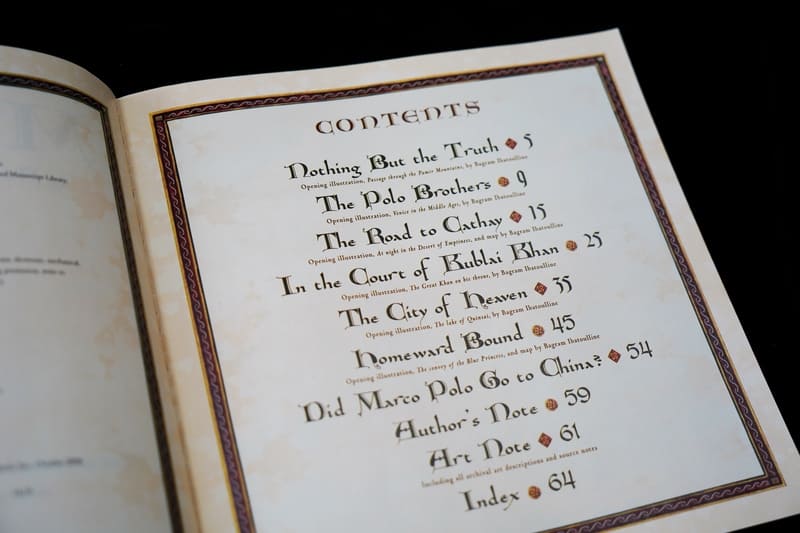 d Manuscript Library,
CONTENTS
Nothing But the Truth 5
Opening illustration, Passage through the Pamir Mountains, by Bagram Ibatoulline
The Polo Brothers 9
Opening illustration, Venice in the Middle Ages, by Bagram Ibatoulline
The Road to Cathay 15
Opening illustration, At night in the Desert of Emptiness, and map by Bagram Ibatoulline
In the Court of Kublai Khan 25
Opening illustration, The Great Khan on his throne, by Bagram Ibatoulline
The City of Heaven 35
Opening illustration, The lake of Quinsai, by Bagram Ibatoulline
Homeward Bound 45
Opening illustration, The convoy of the Blue Princess, and map by Bagram Ibatoulline
Did Marco Polo Go to China? 54
Author's Note 59
Art Note 61
Including all archival art descriptions and source notes
Index 64